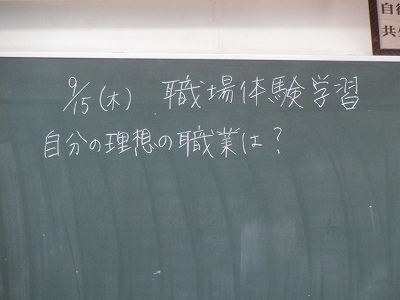 自
共
9/15(木) 職場体験学習
自分の理想の職業は?